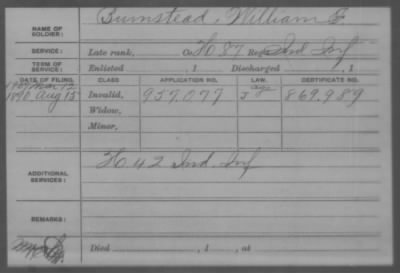 NAME OF SOLDIER: Bumstead, William F.
SERVICE: Late rank, Co. H. 87 Reg't Ind Inf
TERM OF SERVICE: Enlisted , 1 Discharged , 1
DATE OF FILING. CLASS APPLICATION NO. LAW. CERTIFICATE NO.
1907 Mar 12 age
1890 Aug 15 Invalid, 957.077 J 869.989
Widow,
Minor,
ADDITIONAL SERVICES: H. 42 Ind. Inf
REMARKS:
Died , 1 , at